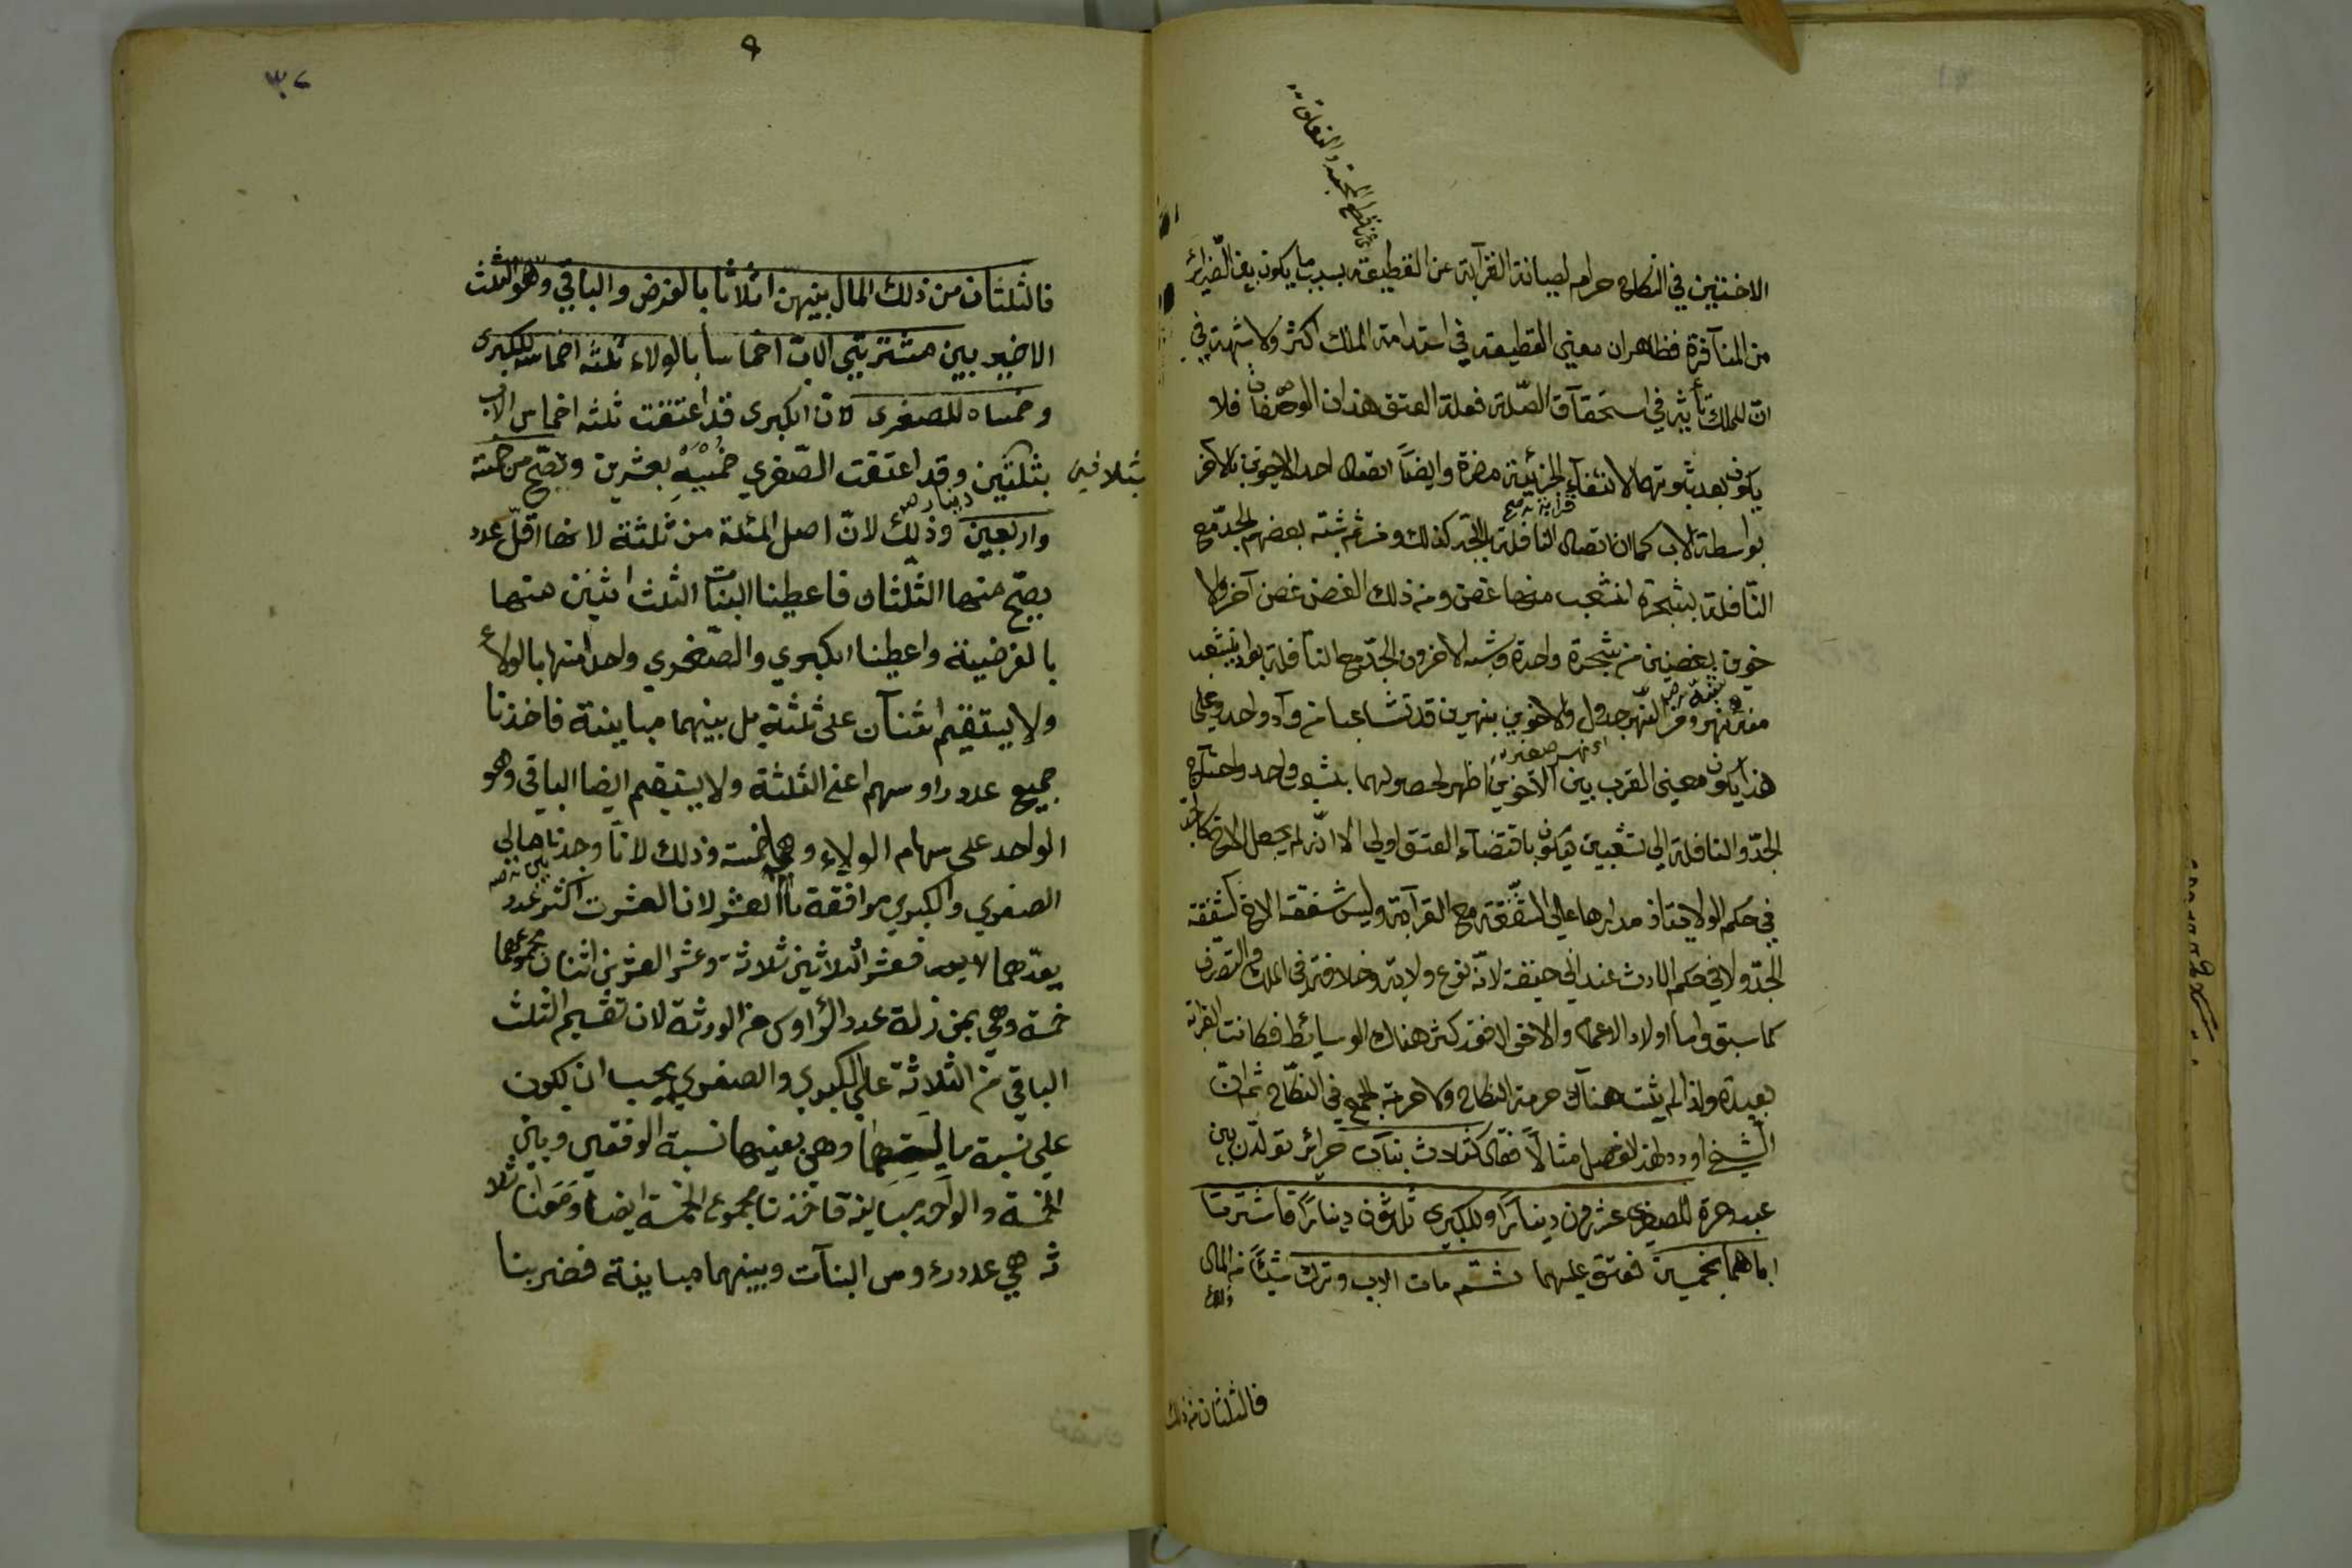 الاختين في النكاح حرام لصيانة القرآبة عن القطيعة بسبب ما يكون بين الضرائر
من المنآفرة فظاهر ان معنى القطيعة في استدامة الملك اكثر ولا شبهة في
ان للملك تأثير في استحقآق الصّلة فعلة العتق هذان الوصفان فلا
يكون بعد ثبوتهما لانتفآء الجزئية مضرة وايضاً اتصال احد الاخوين بالاخر
بواسطة الاب كما ان اتصال النافلة بالجد كذلك ومن ثم شبّه بعضهم الجدّ مع
النّافلة بشجرة انشعب منها غصن ومن ذلك الغصن غصن آخر والا
خوين بغصنين من شجرة واحدة وشبه الاخرون الجدّ مع النآفلة بواد ينشعب
منه نهر ومن النهر جدول والاخوين بنهرين قد تشاعبا من وآد واحد وعلى
اى نهر صغير
هذا يكون معنى القرب بين الآخوين اظهر لحصولهما بشعب واحد واحتيآج
الجدّ والنافلة الى تشعبين فيكون باقتضآء العتق اولى الا انّه لم يجعل الاخ كالجد
في حكم الولاية اذ مدارها على الشفقة مع القرآبة وليس شفقة الاخ كشفقة
الجدّ ولا في حكم الارث عند ابي حنيفة لانّه نوع ولاية وخلافة في الملك والتصرف
كما سبق واما اولاد الاعمام والاخوال فقد كثر هناك الوسائط فكانت القرابة
بعيدة ولذا لم يثبت هنآك حرمة النكاح ولا حرمة الجمع في النكّاح ثم ان
الشيخ اورد لهذا الفصل مثالاً فقال كثلاث بنآت حرائر تولدن بين
عبد وحرة للصغرى عشرون ديناراً وللكبرى ثلثون ديناراً فاشترتا
اباهما بخمسين فعتق عليهما ثمّ مات الاب وترك شيئاً من المال
فالثلثان من ذلك
٩
٣٧
فالثلثان من ذلك المال بينهن اثلاثا بالفرض والباقي وهو الثلث
الاخير بين مشتريتي الاب اخماسا بالولاء ثلثة اخماسه للكبرى
وخمساه للصغرى لان الكبرى قد اعتقت ثلثه اخماس الاب
بثلثين وقد اعتقت الصّغري خمسيه بعشرين وتصح من خمسة
بثلاثين
دينار
واربعين وذلك لانّ اصل المسئلة من ثلثة لانها اقلّ عدد
يصحّ منها الثّلثان فاعطينا البنات الثلث اثنين منها
بالفرضية واعطينا الكبري والصّغري واحدا منها بالولاء
ولا يستقيم اثنآن على ثلثة بل بينهما مباينة فاخذنا
جميع عدد راوسهم اعني الثلثة ولا يستقيم ايضا الباقى وهو
الواحد على سهام الولاء وهي خمسة وذلك لانا وجدنا مالى
الصغري والكبري موافقة بالعشر لان العشرت اكثر عدد
يعدّهما فعشر الثلاثين ثلاثة وعشر العشرين اثنان مجموعهما
خمسة وهي بمنزلة عدد الرؤاوس من الورثة لان تقسيم الثلث
الباقي من الثلاثة على الكبري والصغري يجب ان يكون
علي نسبة ما وهي بعينها نسبة الوفقين وبين
الخمسة والواحد مباينة فاخذنا مجموع الخمسة ايضا وقولنا ثلا
ثه هي عدد رءوس البنآت وبينهما مباينة فضربنا